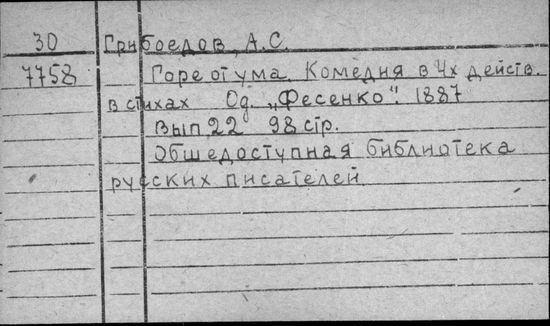 30 Грибоедов, А.С.
7758 Горе от ума. Комедия в 4х действ.
в стихах Од. „Фесенко". 1887
Вып. 22 98 стр.
Общедоступная библиотека
русских писателей.